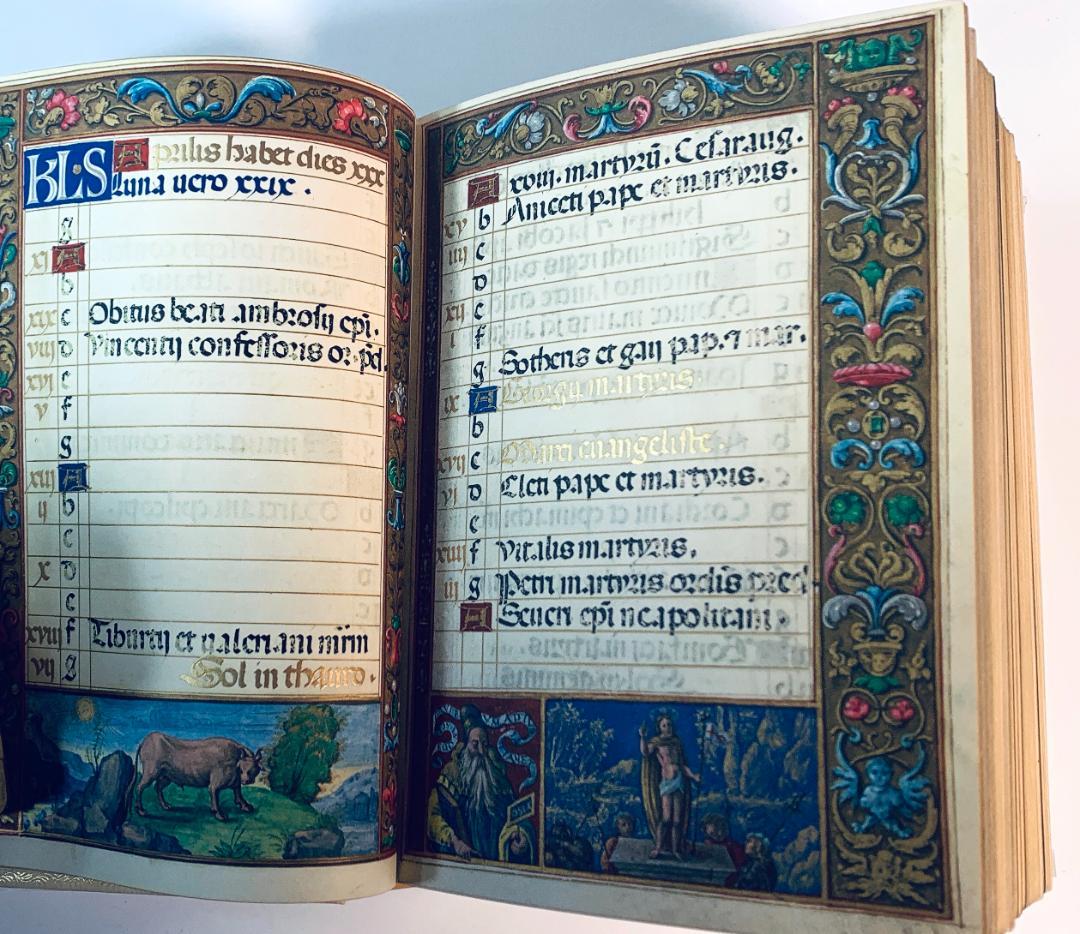 KLS Aprilis habet dies xxx
Luna uero xxix.
g
xj A
b
xix c Obitus beati ambrosij epi.
viij d Vincentij confessoris or. pd.
xvj e
v f
g
xiij A
ij b
c
x d
e
xviij f Tiburtij et ualeriani mrm
vij g
Sol in thauro.
A xviij. martyrū. Cesaraug.
xv b Aniceti pape et martyris.
iiij c
d
xij e
i f
g Sotheris et gaij pap. ⁊ mar.
ix A Georgij martyris.
b
xvij c Marci euangeliste.
vj d Cleti pape et martyris.
e
xiiij f Vitalis martyris.
iij g Petri martyris ordis pred.
A Seueri epi neapolitani